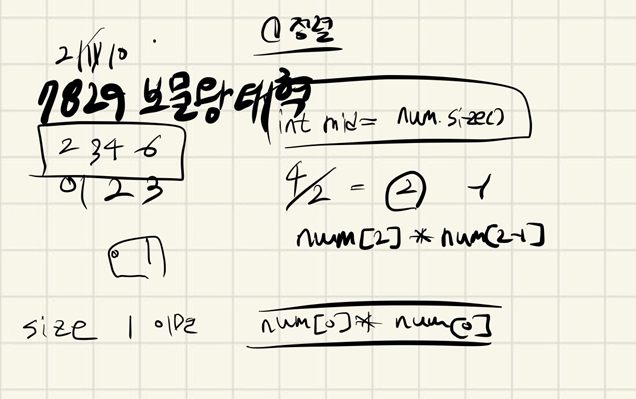 ① 정렬
7829 보물왕 태혁
int mid = num.size()
2 3 4 6
0 1 2 3
4/2 = 2 -1
num[2] * num[2-1]
size 1 이면
num[0] * num[0]